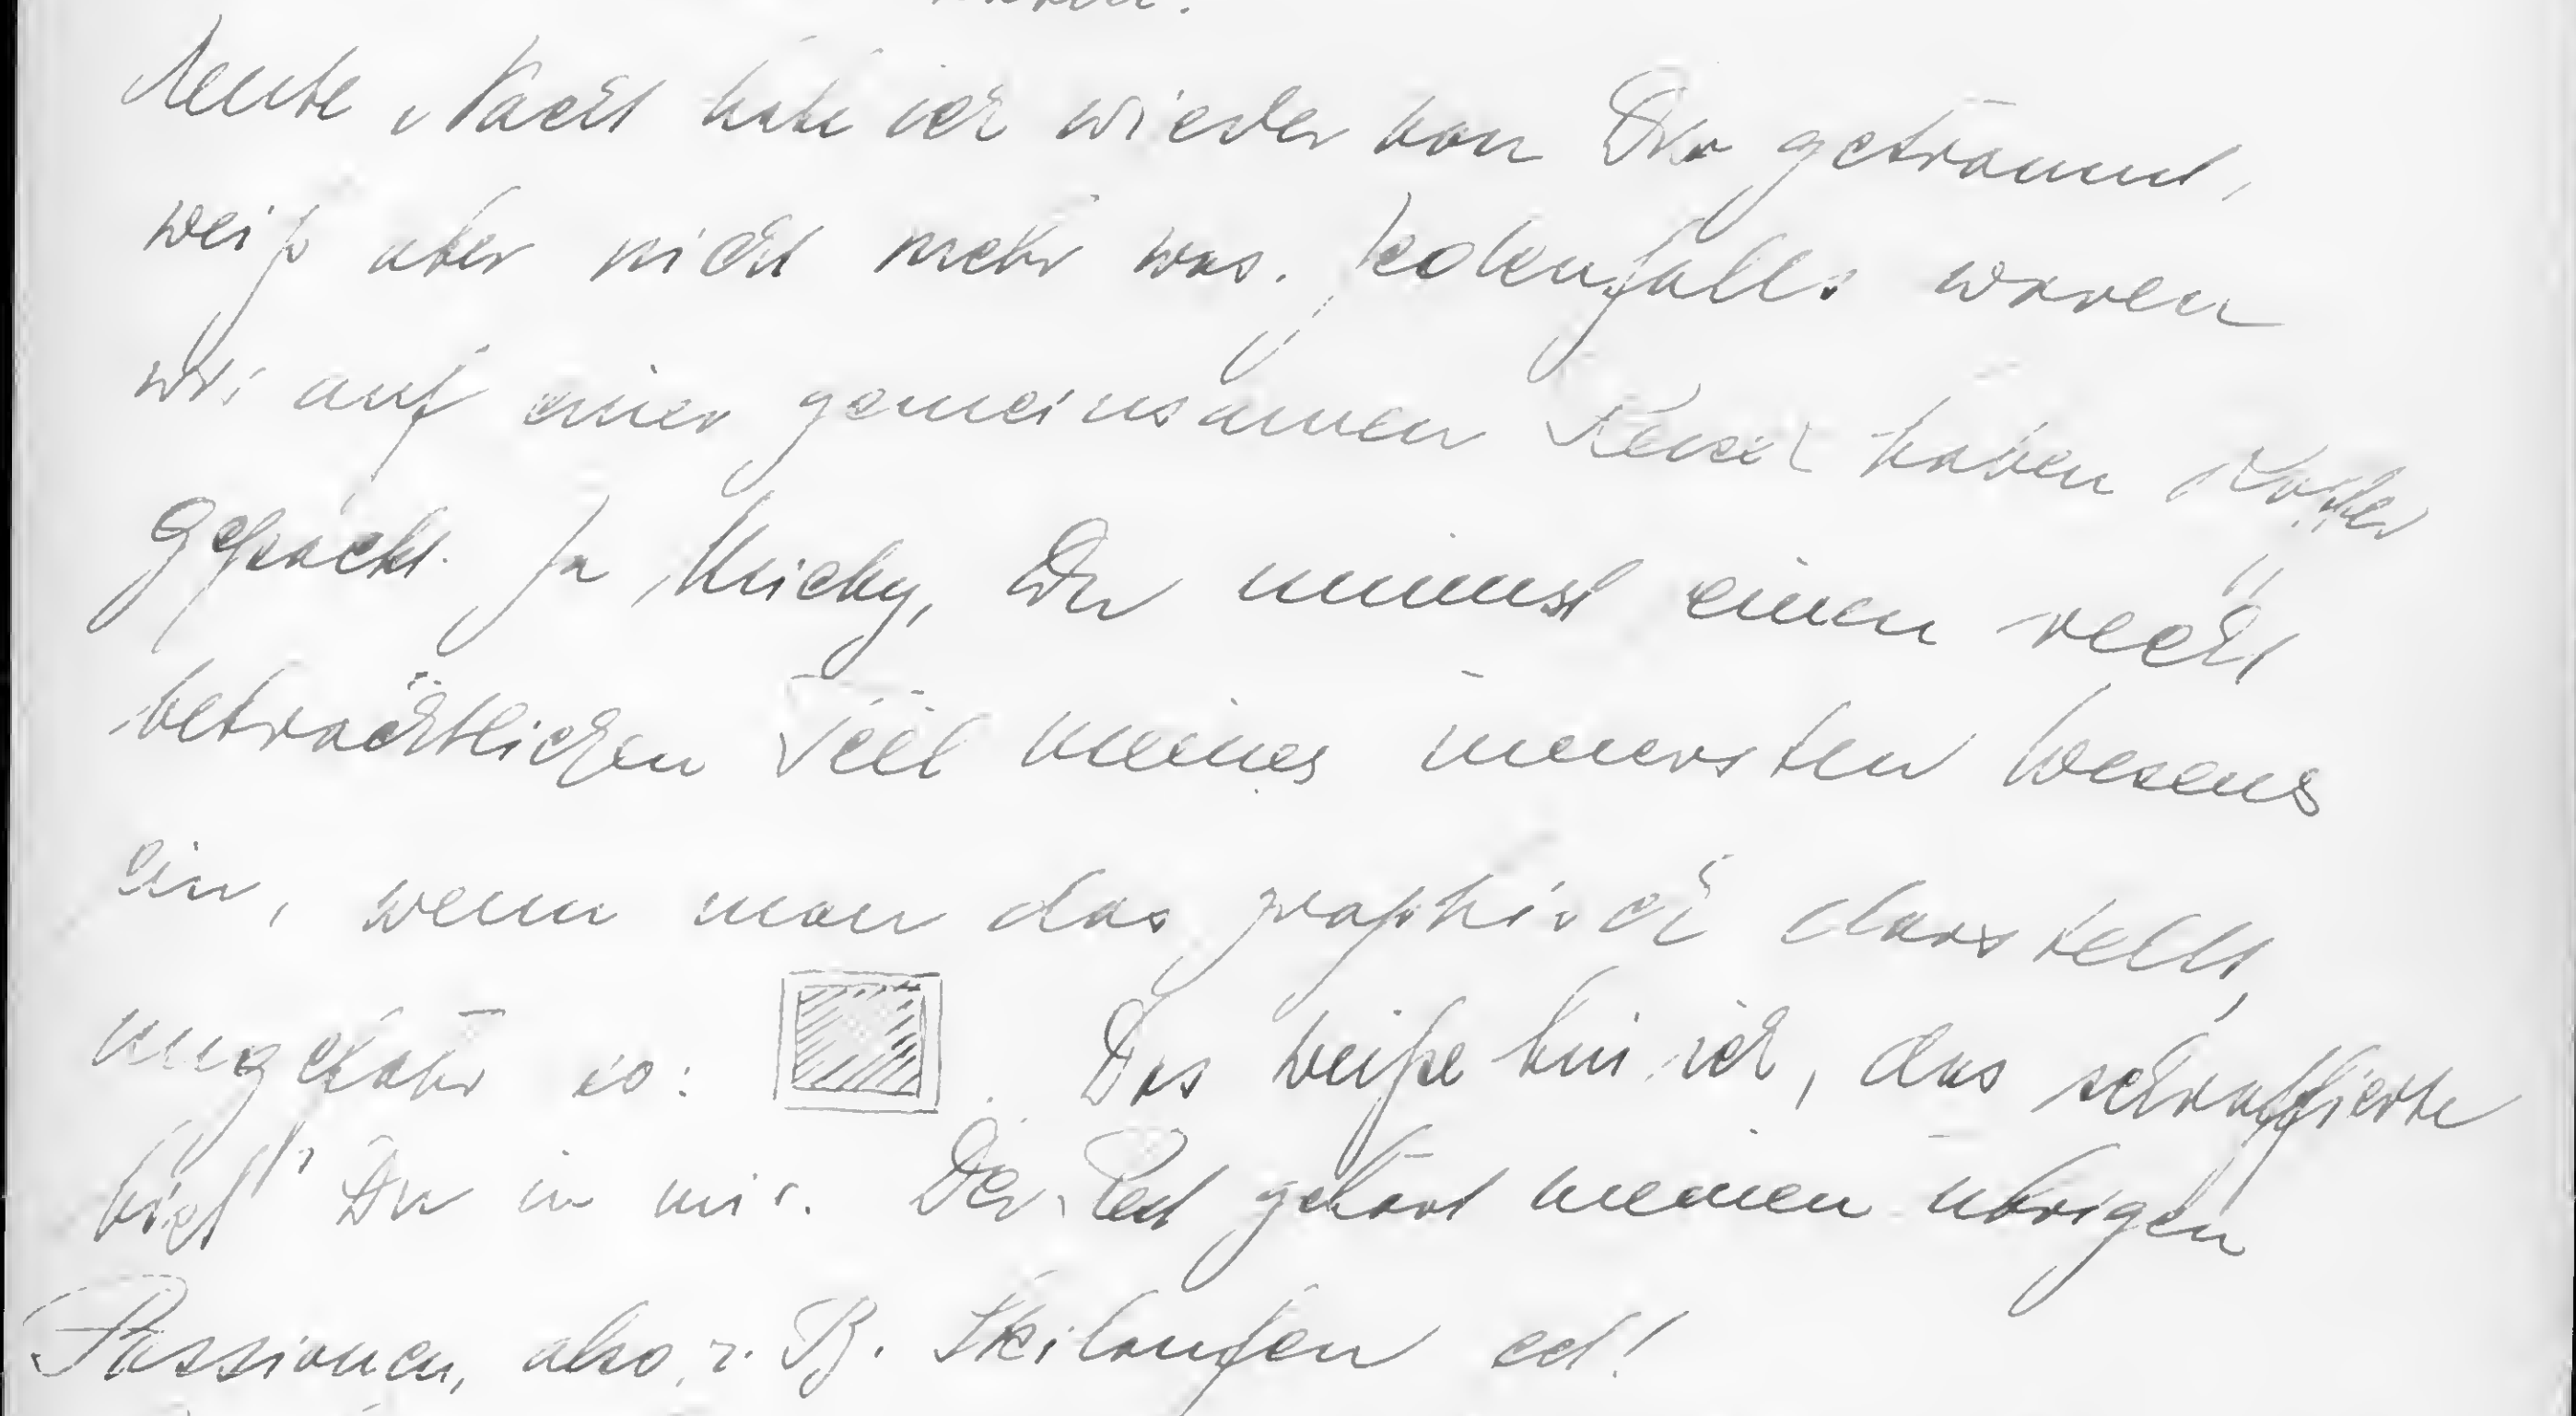 Heute Nacht habe ich wieder von Dir geträumt,
weiß aber nicht mehr was. Jedenfalls waren
wir auf einer gemeinsamen haben Koffer
gepackt. Ja Micky, Du nimmst einen recht
beträchtlichen Teil meines innersten Wesens
ein, wenn man das graphisch darstellt,
ungefähr so: . Das weiße bin ich, das schraffierte
bist Du in mir. Der Rest gehört meinen übrigen
Passionen, also z. B. Skilaufen ect!